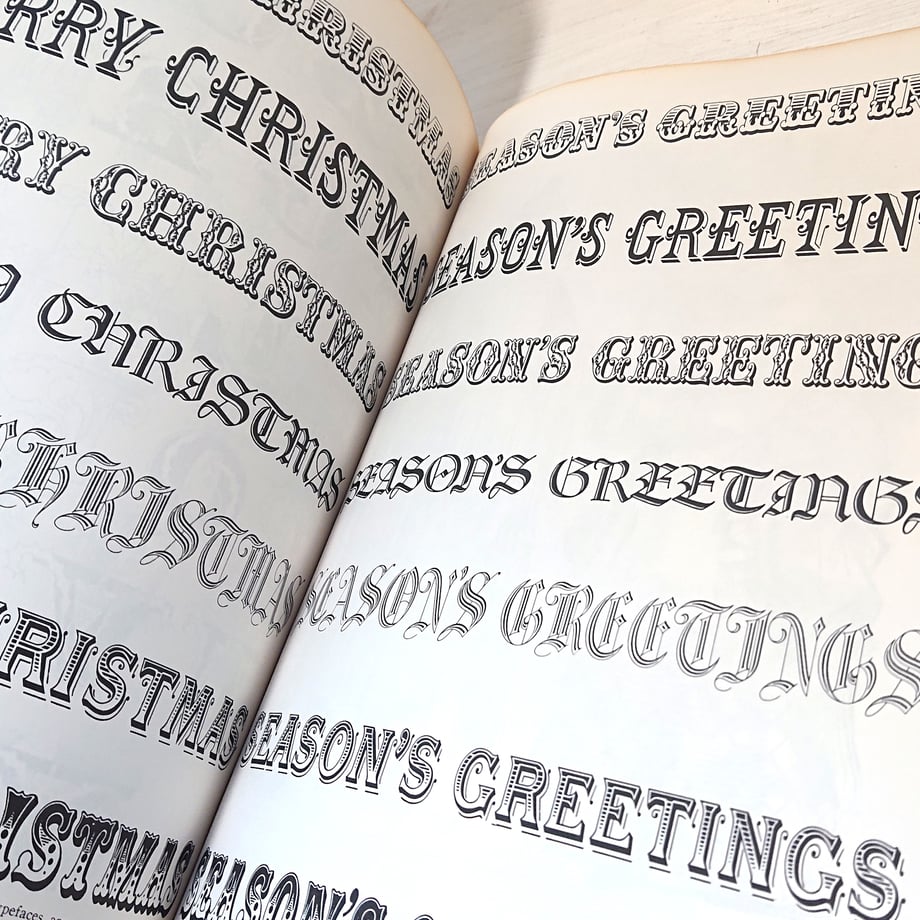 CHRISTMAS
RRY CHRISTMAS
RY CHRISTMAS
CHRISTMAS
CHRISTMAS
CHRISTMAS
ISTMAS
ypefaces
SEASON'S GREETIN
SEASON'S GREETIN
SEASON'S GREETING
SEASON'S GREETINGS
SEASON'S GREETINGS
SEASON'S GREETINGS
SEASON'S